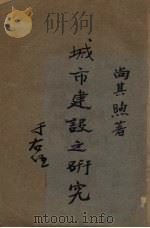 尚其煦著
城市建設之研究
于右任